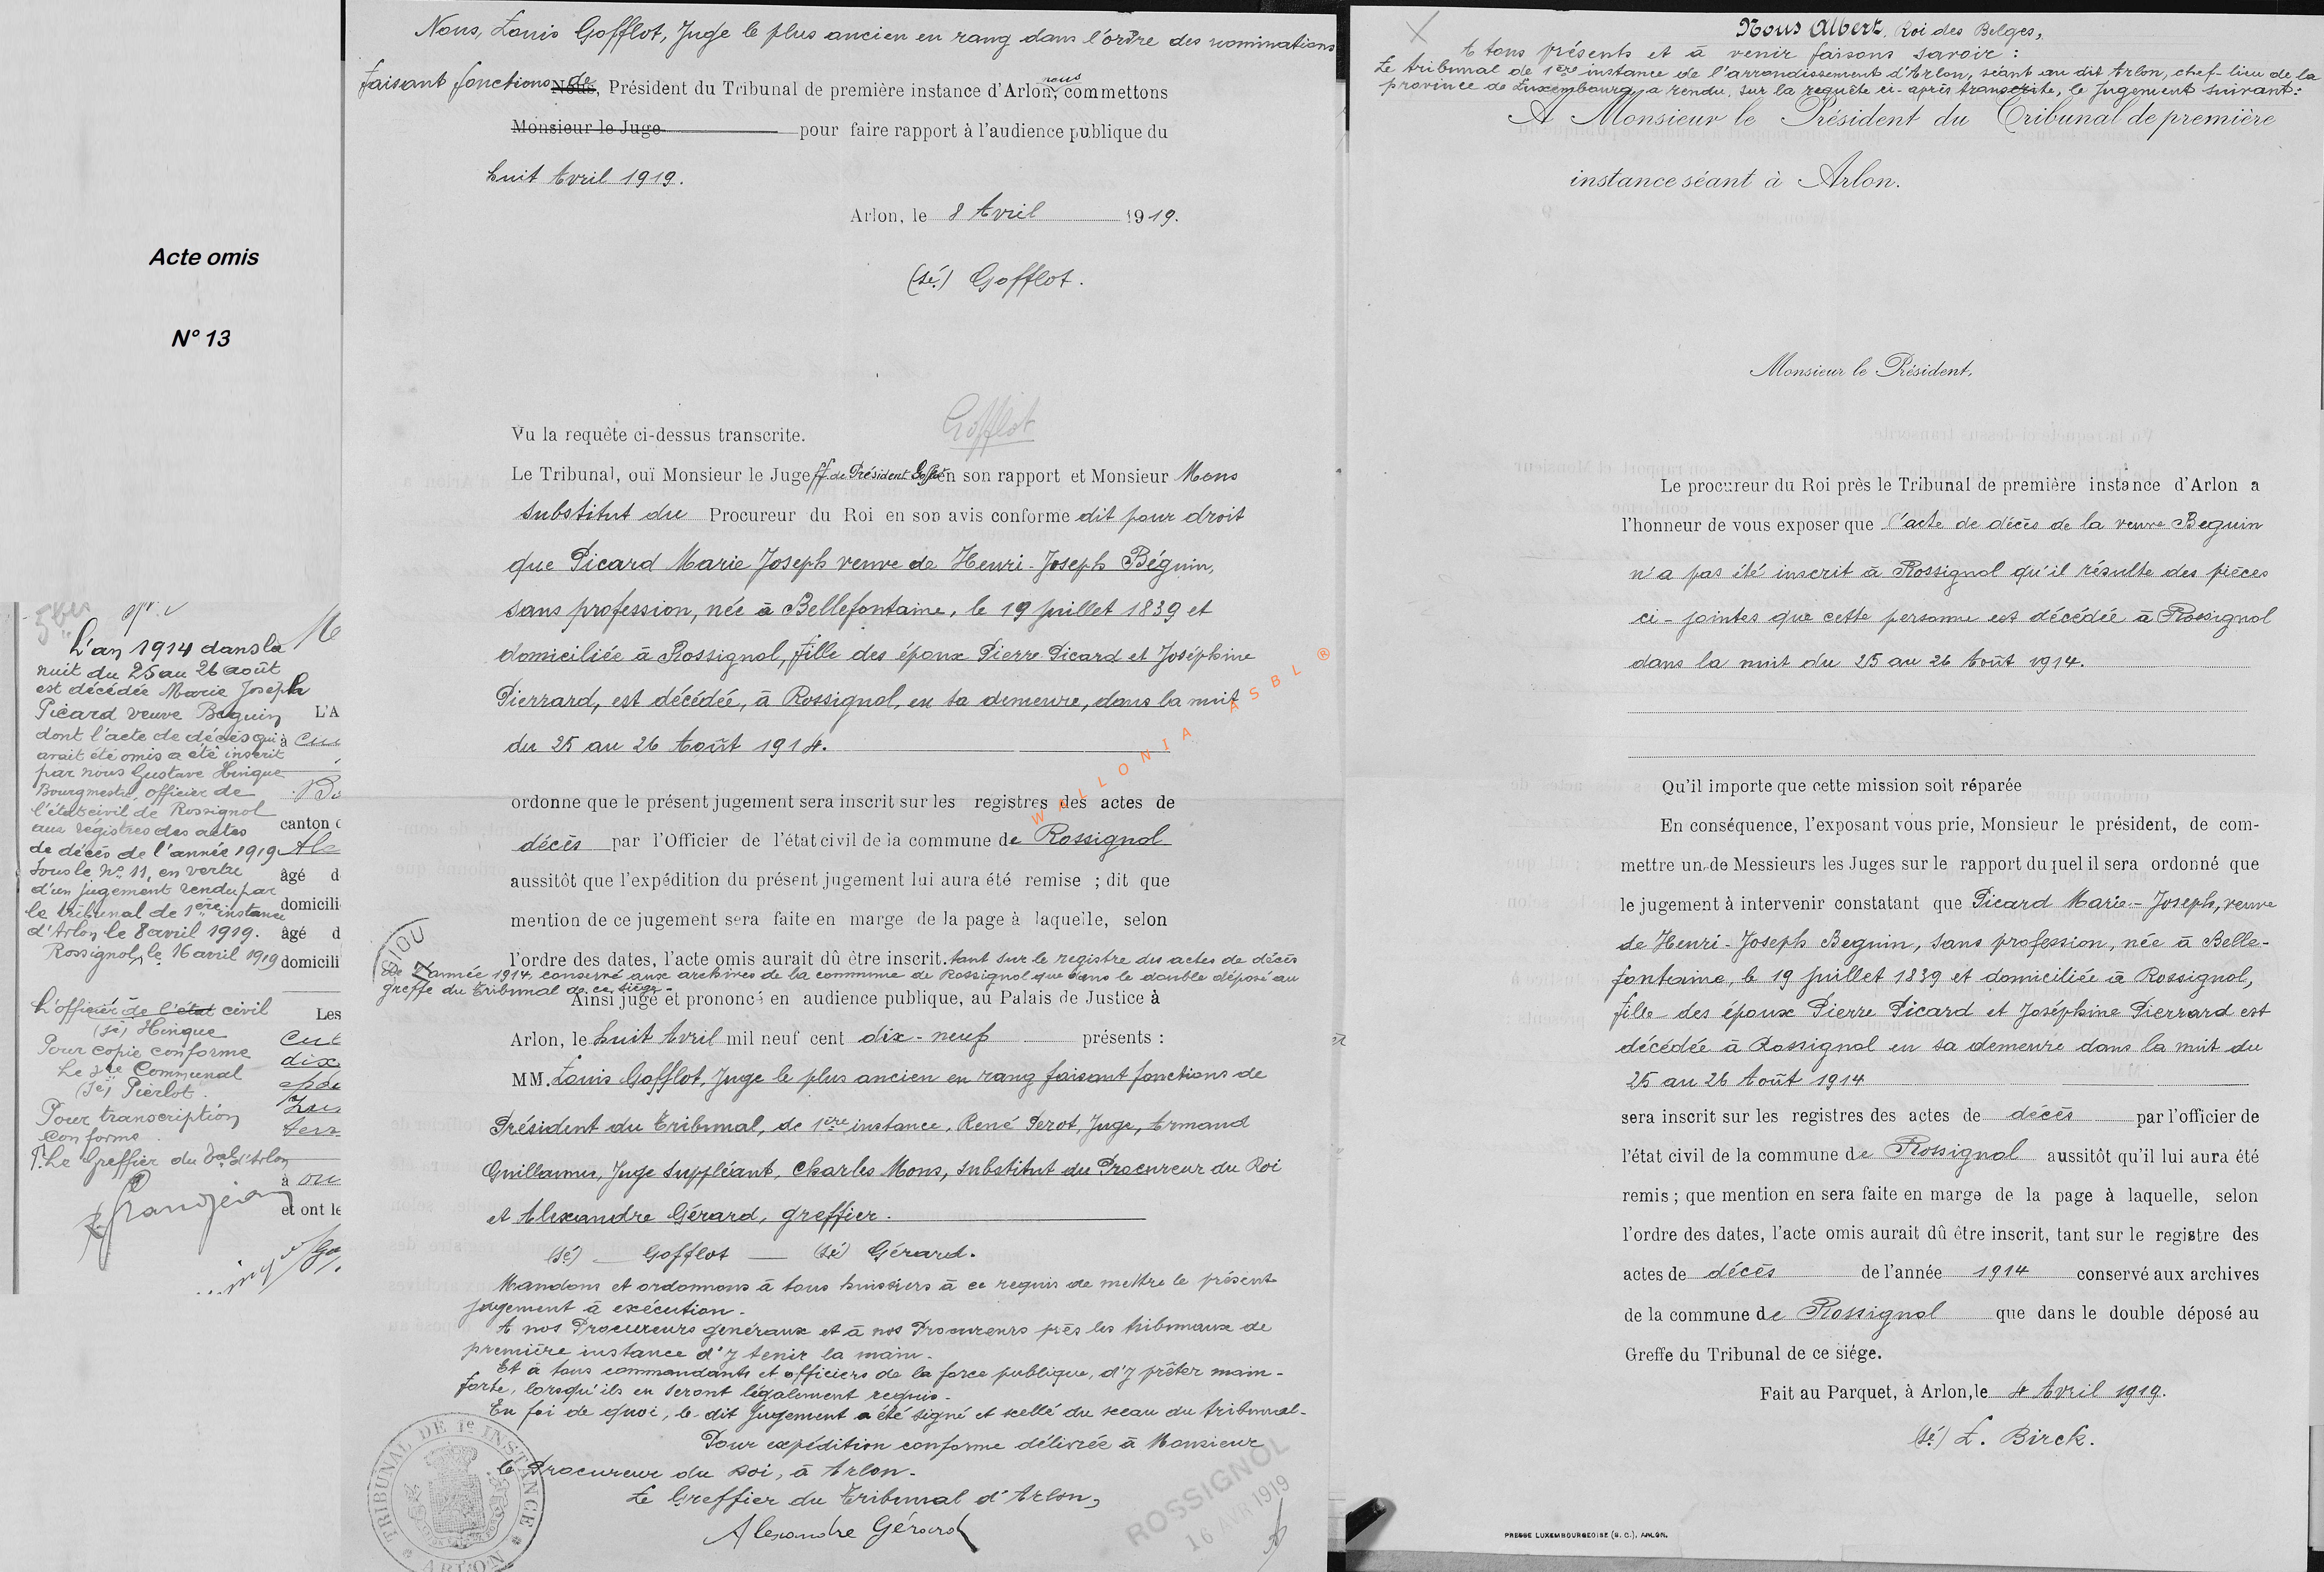 Acte omis
N° 13
5ter
L'an 1914 dans la
nuit du 25 au 26 août
est décédée Marie Joseph
Picard veuve Beguin
dont l'acte de décès qui
avait été omis a été inscrit
par nous Gustave Hinque
Bourgmestre, officier de
l'état civil de Rossignol
aux régistres des actes
de décès de l'année 1919
sous le No 11, en vertu
d'un jugement rendu par
le tribunal de 1ère instance
d'Arlon le 8 avril 1919.
Rossignol, le 16 avril 1919
L'officier de l'état civil
(sé) Hinque
Pour copie conforme
Le Sre Communal
(Sé) Pierlot.
Pour transcription
conforme.
P. Le Greffier du Tal d'Arlon
L'A
à
canton d
âgé d
domicili
âgé d
domicili
Les
dix
à
et ont le
Nous, Louis Gofflot, Juge le plus ancien en rang dans l'ordre des nominations
faisant fonctions de Nous, Président du Tribunal de première instance d'Arlon, nous commettons
Monsieur le Juge pour faire rapport à l'audience publique du
huit Avril 1919.
Arlon, le 8 Avril 1919.
(sé.) Gofflot.
Gofflot
Vu la requête ci-dessus transcrite.
Le Tribunal, ouï Monsieur le Juge ff. de Président Gofflot en son rapport et Monsieur Mons
substitut du Procureur du Roi en son avis conforme dit pour droit
que Picard Marie Joseph veuve de Henri-Joseph Béguin,
sans profession, née à Bellefontaine, le 19 juillet 1839 et
domiciliée à Rossignol, fille des époux Pierre Picard et Joséphine
Pierrard, est décédée, à Rossignol, en sa demeure, dans la nuit
du 25 au 26 Août 1914.
WALLONIA ASBL ®
ordonne que le présent jugement sera inscrit sur les registres des actes de
décès par l'Officier de l'état civil de la commune de Rossignol
aussitôt que l'expédition du présent jugement lui aura été remise ; dit que
mention de ce jugement sera faite en marge de la page à laquelle, selon
l'ordre des dates, l'acte omis aurait dû être inscrit. tant sur le registre des actes de décès
de l'année 1914 conservé aux archives de la commune de Rossignol que dans le double déposé au
greffe du Tribunal de ce siège.-
Ainsi jugé et prononcé en audience publique, au Palais de Justice à
Arlon, le huit Avril mil neuf cent dix-neuf présents :
MM. Louis Gofflot, Juge le plus ancien en rang faisant fonctions de
Président du Tribunal, de 1ère instance, René Perot, Juge, Armand
Guillaume, Juge Suppléant, Charles Mons, substitut du Procureur du Roi
et Alexandre Gérard, greffier.
(sé) Gofflot (sé) Gérard.
Mandons et ordonnons à tous huissiers à ce requis de mettre le présent
jugement à exécution.
A nos Procureurs généraux et à nos Procureurs près les tribunaux de
première instance d'y tenir la main.
Et à tous commandants et officiers de la force publique, d'y prêter main-
forte, lorsqu'ils en seront légalement requis.
En foi de quoi, le dit jugement a été signé et scellé du sceau du tribunal-
Pour expédition conforme délivrée à Monsieur
le Procureur du Roi, à Arlon.
Le Greffier du Tribunal d'Arlon,
Alexandre Gérard
TRIBUNAL DE 1e INSTANCE * ARLON *
ROSSIGNOL
16 AVR 1919
Nous Albert, Roi des Belges,
A tous présents et à venir faisons savoir :
Le tribunal de 1ère instance de l'arrondissement d'Arlon, séant au dit Arlon, chef-lieu de la
province de Luxembourg, a rendu, sur la requête ci-après transcrite, le Jugement suivant :
A Monsieur le Président du Tribunal de première
instance séant à Arlon.
Monsieur le Président,
Le procureur du Roi près le Tribunal de première instance d'Arlon a
l'honneur de vous exposer que l'acte de décès de la veuve Beguin
n'a pas été inscrit à Rossignol qu'il résulte des pièces
ci-jointes que cette personne est décédée à Rossignol
dans la nuit du 25 au 26 Août 1914.
Qu'il importe que cette mission soit réparée
En conséquence, l'exposant vous prie, Monsieur le président, de com-
mettre un de Messieurs les Juges sur le rapport duquel il sera ordonné que
le jugement à intervenir constatant que Picard Marie-Joseph, veuve
de Henri-Joseph Beguin, sans profession, née à Belle-
fontaine, le 19 juillet 1839 et domiciliée à Rossignol,
fille des époux Pierre Picard et Joséphine Pierrard est
décédée à Rossignol en sa demeure dans la nuit du
25 au 26 Août 1914
sera inscrit sur les registres des actes de décès par l'officier de
l'état civil de la commune de Rossignol aussitôt qu'il lui aura été
remis ; que mention en sera faite en marge de la page à laquelle, selon
l'ordre des dates, l'acte omis aurait dû être inscrit, tant sur le registre des
actes de décès de l'année 1914 conservé aux archives
de la commune de Rossignol que dans le double déposé au
Greffe du Tribunal de ce siége.
Fait au Parquet, à Arlon, le 4 Avril 1919.
(sé) L. Birck.
PRESSE LUXEMBOURGEOISE (S. C.), ARLON.